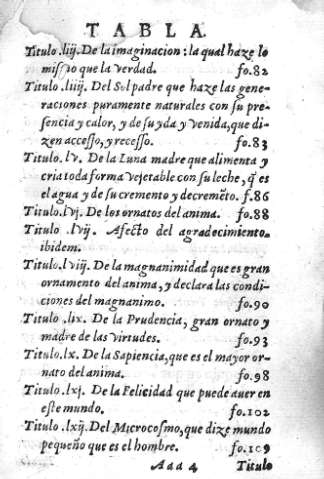 TABLA.
Titulo .liij. De la imaginacion: la qual haze lo
mismo que la verdad. fo.82
Titulo .liiij. Del Sol padre que haze las gene-
raciones puramente naturales con su pre-
sencia y calor, y de su yda y venida, que di-
zen accesso, y recesso. fo.83
Titulo .lv. De la Luna madre que alimenta y
cria toda forma vejetable con su leche, q̃ es
el agua y de su cremento y decremẽto. f.86
Titulo .lvj. De los ornatos del anima. fo.88
Titulo .lvij. Afecto del agradecimiento.
ibidem.
Titulo .lviij. De la magnanimidad que es gran
ornamento del anima, y declara las condi-
ciones del magnanimo. fo.90
Titulo .lix. De la Prudencia, gran ornato y
madre de las virtudes. fo.93
Titulo .lx. De la Sapiencia, que es el mayor or-
nato del anima. fo.98
Titulo .lxj. De la Felicidad que puede auer en
este mundo. fo.102
Titulo .lxij. Del Microcosmo, que dize mundo
pequeño que es el hombre. fo.109
Aaa 4 Titulo